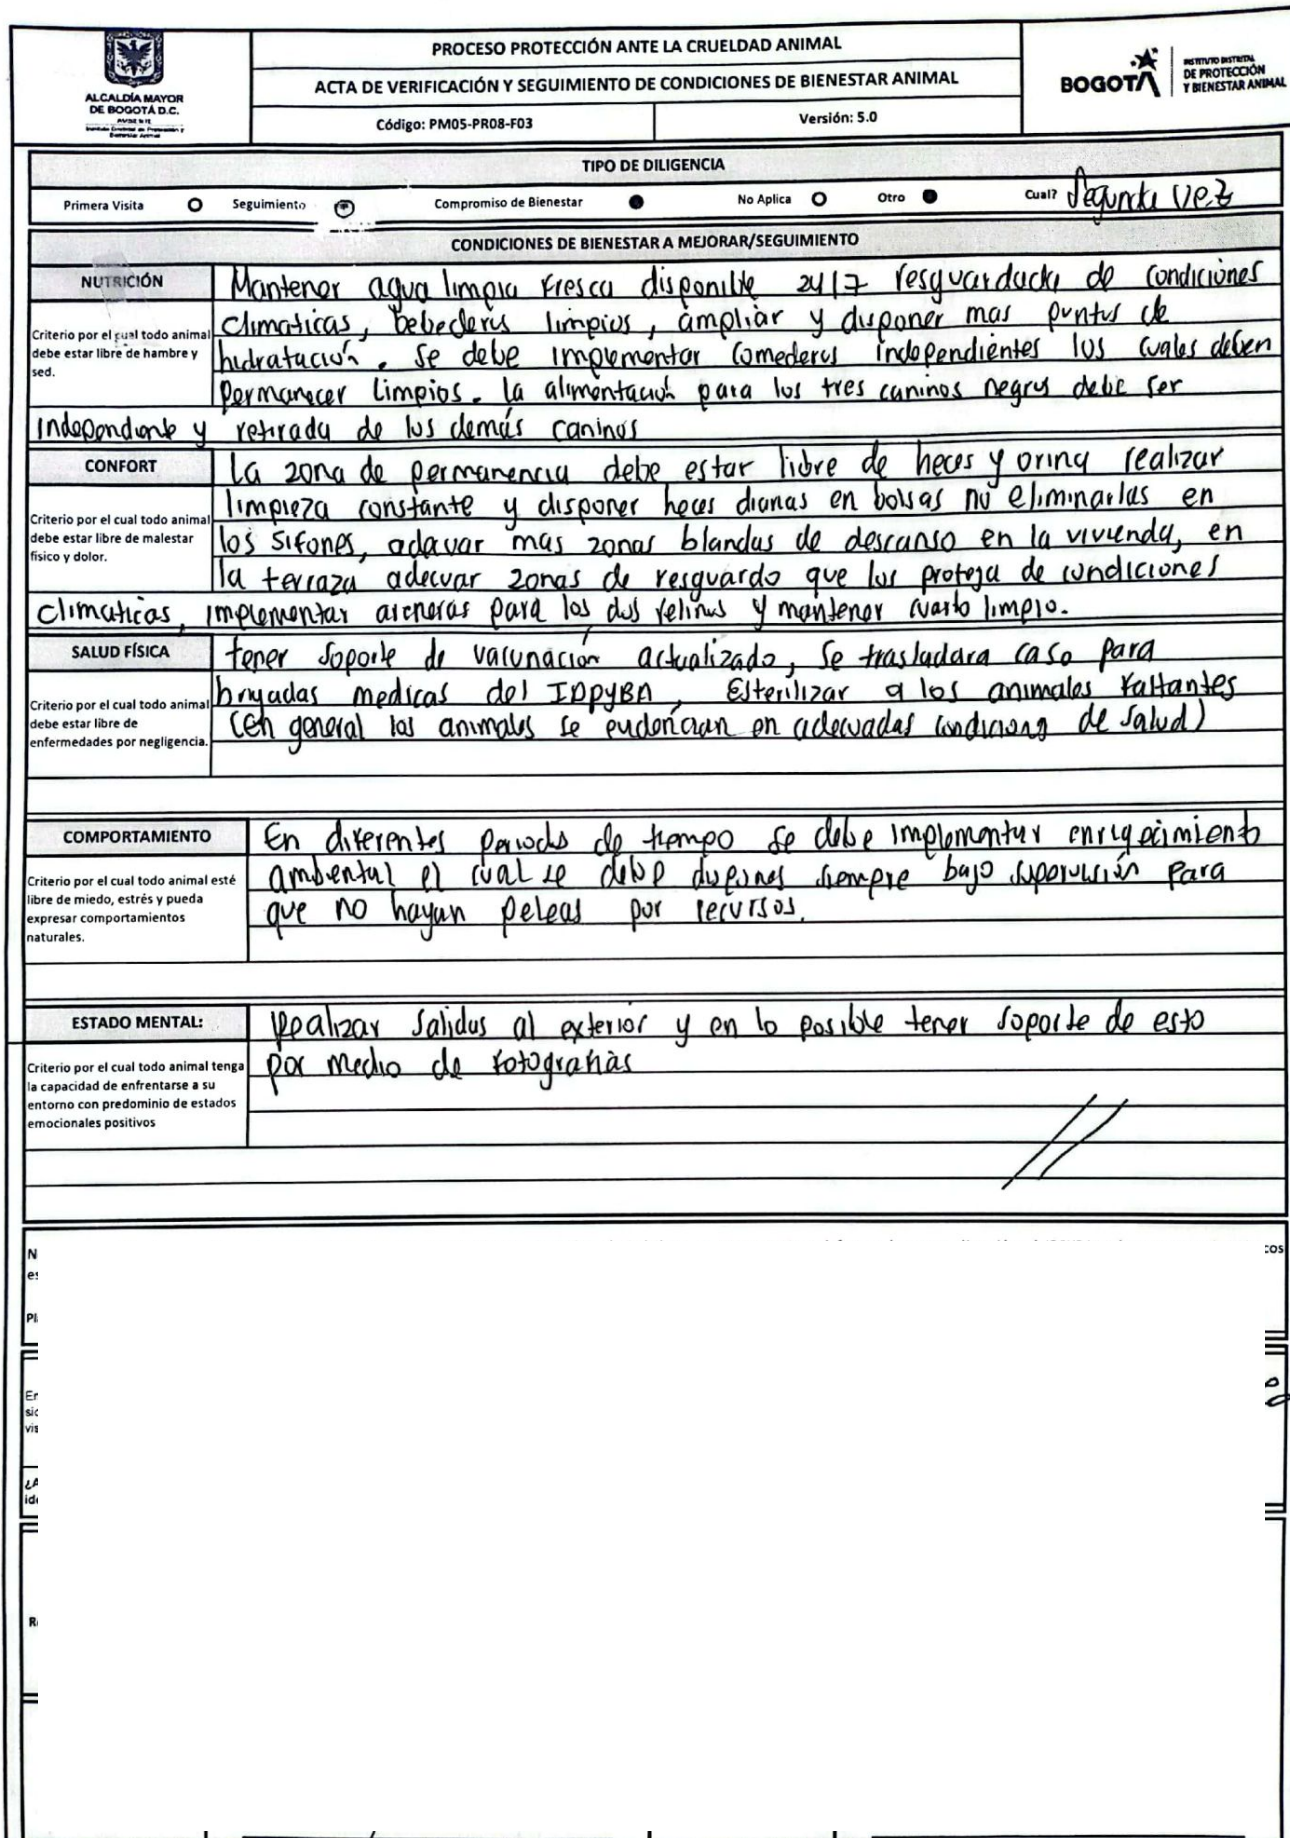 ALCALDÍA MAYOR
DE BOGOTÁ D.C.
Instituto Distrital de Protección y
Bienestar Animal
PROCESO PROTECCIÓN ANTE LA CRUELDAD ANIMAL
ACTA DE VERIFICACIÓN Y SEGUIMIENTO DE CONDICIONES DE BIENESTAR ANIMAL
Código: PM05-PR08-F03
Versión: 5.0
BOGOTÁ
INSTITUTO DISTRITAL
DE PROTECCIÓN
Y BIENESTAR ANIMAL
TIPO DE DILIGENCIA
Primera Visita Seguimiento Compromiso de Bienestar No Aplica Otro Cual? Segunda vez
CONDICIONES DE BIENESTAR A MEJORAR/SEGUIMIENTO
NUTRICIÓN
Criterio por el cual todo animal
debe estar libre de hambre y
sed.
Mantener agua limpia fresca disponible 24/7 resguardada de condiciones
climaticas, bebederos limpios, ampliar y disponer mas puntos de
hidratación. Se debe implementar comederos independientes los cuales deben
permanecer limpios. la alimentación para los tres caninos negros debe ser
independiente y retirada de los demás caninos
CONFORT
Criterio por el cual todo animal
debe estar libre de malestar
físico y dolor.
la zona de permanencia debe estar libre de heces y orina realizar
limpieza constante y disponer heces diarias en bolsas no eliminarlas en
los sifones, adecuar mas zonas blandas de descanso en la vivienda, en
la terraza adecuar zonas de resguardo que los proteja de condiciones
climaticas, implementar areneras para los dos felinos y mantener cuarto limpio.
SALUD FÍSICA
Criterio por el cual todo animal
debe estar libre de
enfermedades por negligencia.
tener soporte de vacunación actualizado, se trasladara caso para
brigadas medicas del IDPYBA, Esterilizar a los animales faltantes
(en general los animales se evidencian en adecuadas condiciones de salud)
COMPORTAMIENTO
Criterio por el cual todo animal esté
libre de miedo, estrés y pueda
expresar comportamientos
naturales.
En diferentes periodos de tiempo se debe implementar enriqecimiento
ambiental el cual se debe siempre bajo supervisión para
que no hayan peleas por recursos.
ESTADO MENTAL:
Criterio por el cual todo animal tenga
la capacidad de enfrentarse a su
entorno con predominio de estados
emocionales positivos
Realizar salidas al exterior y en lo posible tener soporte de esto
por medio de fotografías